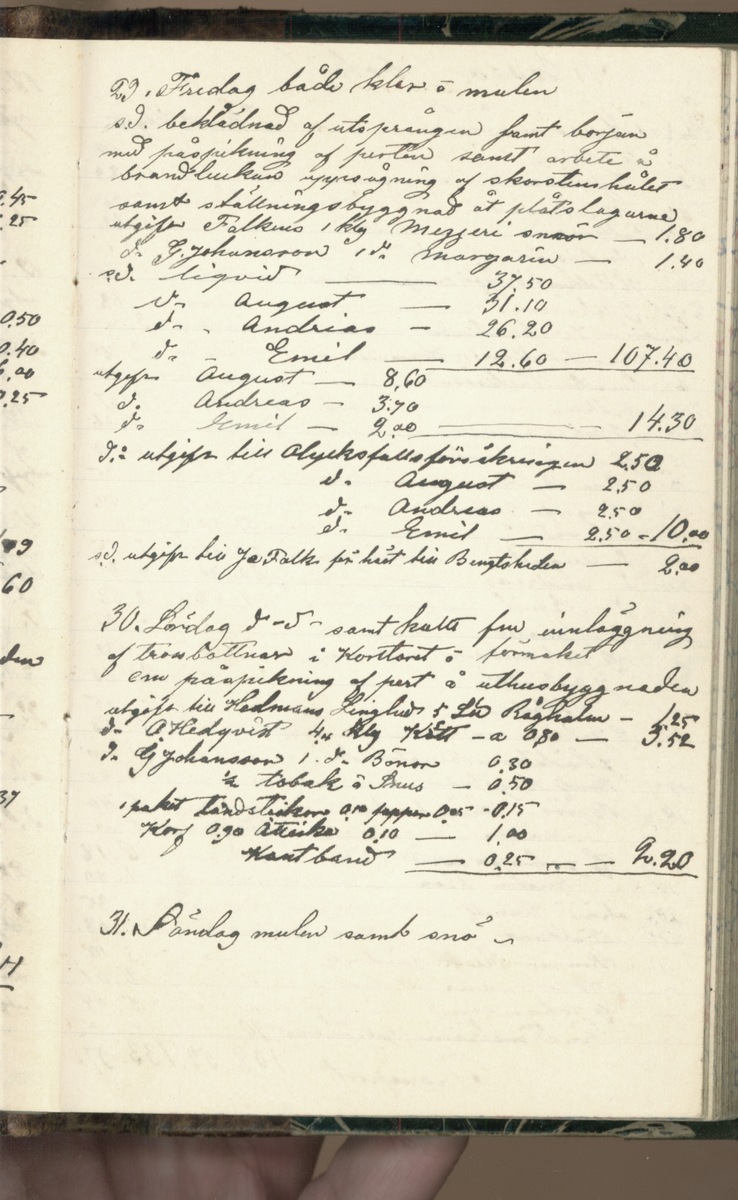 29. Fredag både klar ō mulen
s.d. beklädnad af utsprången samt början
med påspikning af perten samt arbete å
brandluckan uppsågning af skorstenshålet
samt ställningsbyggnad åt plåtslagarne
utgift Falkens 1 klg Mejeri smör — 1.80
d- G. Johansson 1 d- Margarin — 1.40
s.d. liqvid — 37.50
d- August — 31.10
d- Andrias — 26.20
d- Emil — 12.60 — 107.40
utgift August — 8,60
d- Andreas — 3.70
d- Emil — 2.00 — 14.30
d:o utgift till Olycksfallsförsäkringen 2.50
d- August — 2.50
d- Andreas — 2.50
d- Emil — 2.50 - 10.00
s.d. utgift till Falk för häst till Bengtsheden — 2.00
30. Lördag d-d- samt kallt
af trossbottnar i Kontoret ō förmaket
påspikning af pert å uthusbyggnaden
utgift till Hedmans 5 Råghalm - 1.25
d- A. Hedqvist klg Kött - a 0,80 — 3.52
d- G Johansson 1 d- Bönor 0.30
½ tobak ō Snus — 0.50
1 paket tändstickor 0.10 peppar 0.05 - 0.15
Korf 0.90 Ättika 0.10 — 1.00
Kantband — 0.25 — 2.20
31. Söndag mulen samt snö -
0.50
0.40
.25
60
37